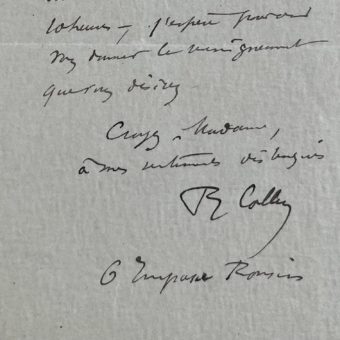 10 heures, j'espère pouvoir
vous donner le renseignement
que vous désirez.
Croyez, Madame,
à mes sentiments distingués
6 Impasse Ronsin